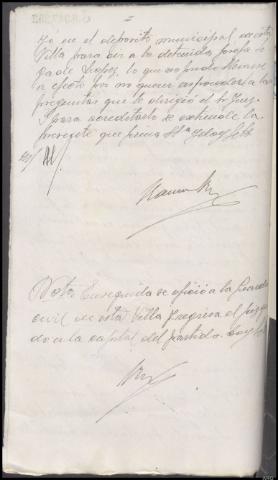 en el deposito municipal de esta
Villa para oir a la detenida Josefa
Lopez, lo que no pudo llevarse
a efecto por no querer responder a las
preguntas que le dirigió el Sr Juez.
Y para acreditarlo se extiende la
presente que firma S.Sª doy fe
Ramon
Nota: Enseguida se ofició a la Guardia
civil de esta Villa y regresa el Juzga
do a la capital del partido. Doy fe